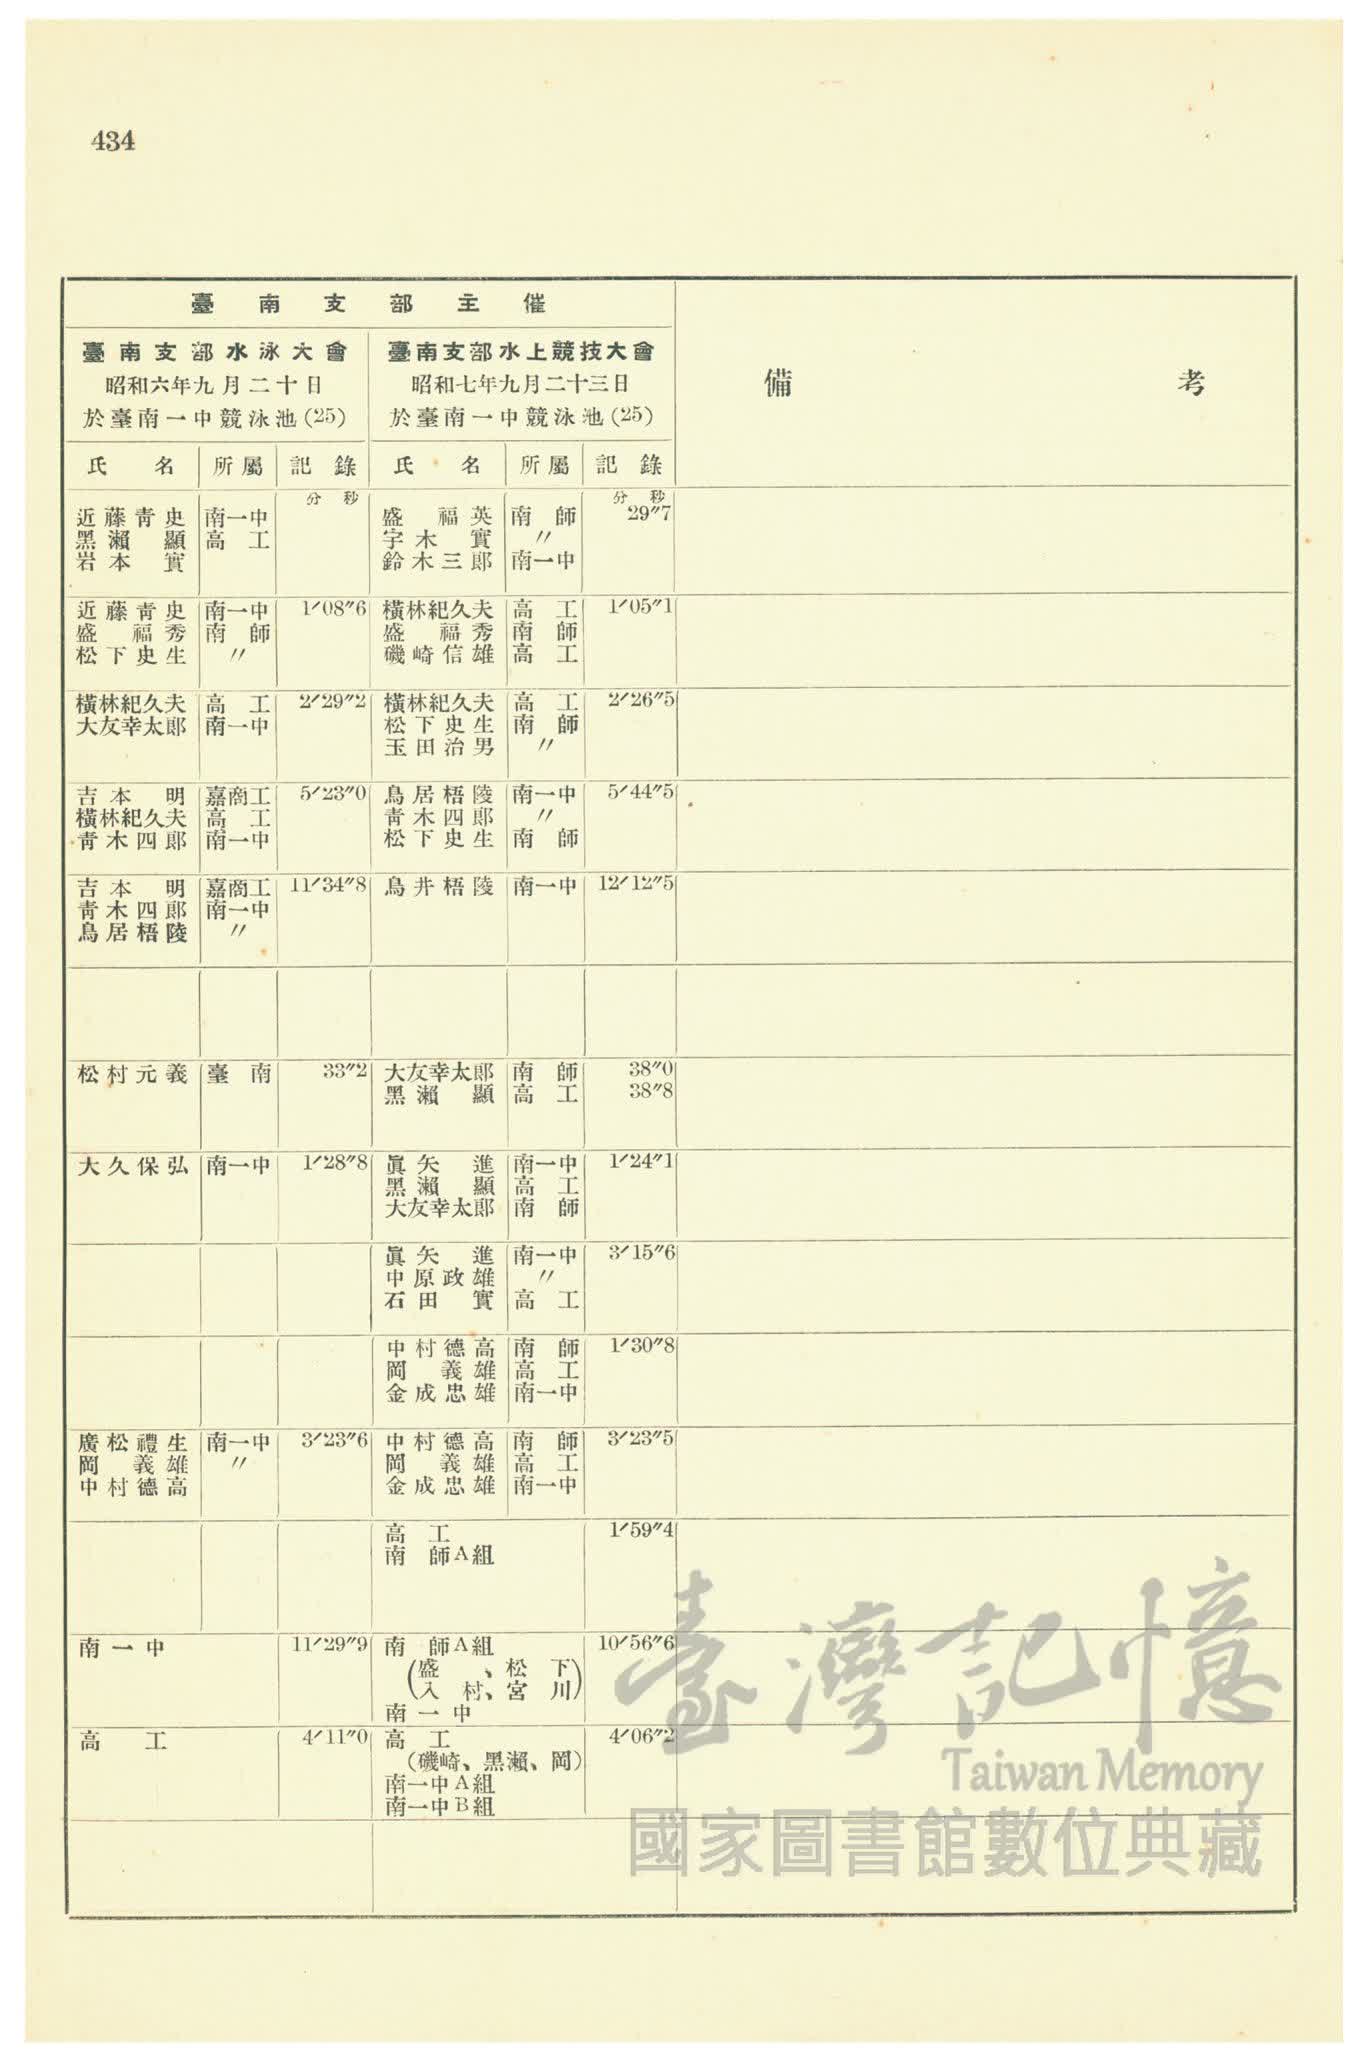 434
臺南支部主催
臺南支部水泳大會 臺南支部水上競技大會
昭和六年九月二十日 昭和七年九月二十三日
備考
於臺南一中競泳池(25) 於臺南一中競泳池(25)
氏名 所屬 記錄 氏名 所屬 記錄
分秒 分秒
近藤靑史 南一中 盛福英 南師 29″7
黑瀨顯 高工 宇木實 〃
岩本實 鈴木三郞 南一中
近藤靑史 南一中 1′08″6 橫林紀久夫 高工 1′05″1
盛福秀 南師 盛福秀 南師
松下史生 〃 磯崎信雄 高工
橫林紀久夫 高工 2′29″2 橫林紀久夫 高工 2′26″5
大友幸太郞 南一中 松下史生 南師
玉田治男 〃
吉本明 嘉商工 5′23″0 鳥居梧陵 南一中 5′44″5
橫林紀久夫 高工 靑木四郞 〃
靑木四郞 南一中 松下史生 南師
吉本明 嘉商工 11′34″8 鳥井梧陵 南一中 12′12″5
靑木四郞 南一中
鳥居梧陵 〃
松村元義 臺南 33″2 大友幸太郞 南師 38″0
黑瀨顯 高工 38″8
大久保弘 南一中 1′28″8 眞矢進 南一中 1′24″1
黑瀨顯 高工
大友幸太郞 南師
眞矢進 南一中 3′15″6
中原政雄 〃
石田實 高工
中村德高 南師 1′30″8
岡義雄 高工
金成忠雄 南一中
廣松禮生 南一中 3′23″6 中村德高 南師 3′23″5
岡義雄 〃 岡義雄 高工
中村德高 金成忠雄 南一中
高工 1′59″4
南師A組
南一中 11′29″9 南師A組 10′56″6
(盛、松下
入村、宮川)
南一中
高工 4′11″0 高工 4′06″2
(磯崎、黑瀨、岡)
南一中A組
南一中B組
臺灣記憶
Taiwan Memory
國家圖書館數位典藏